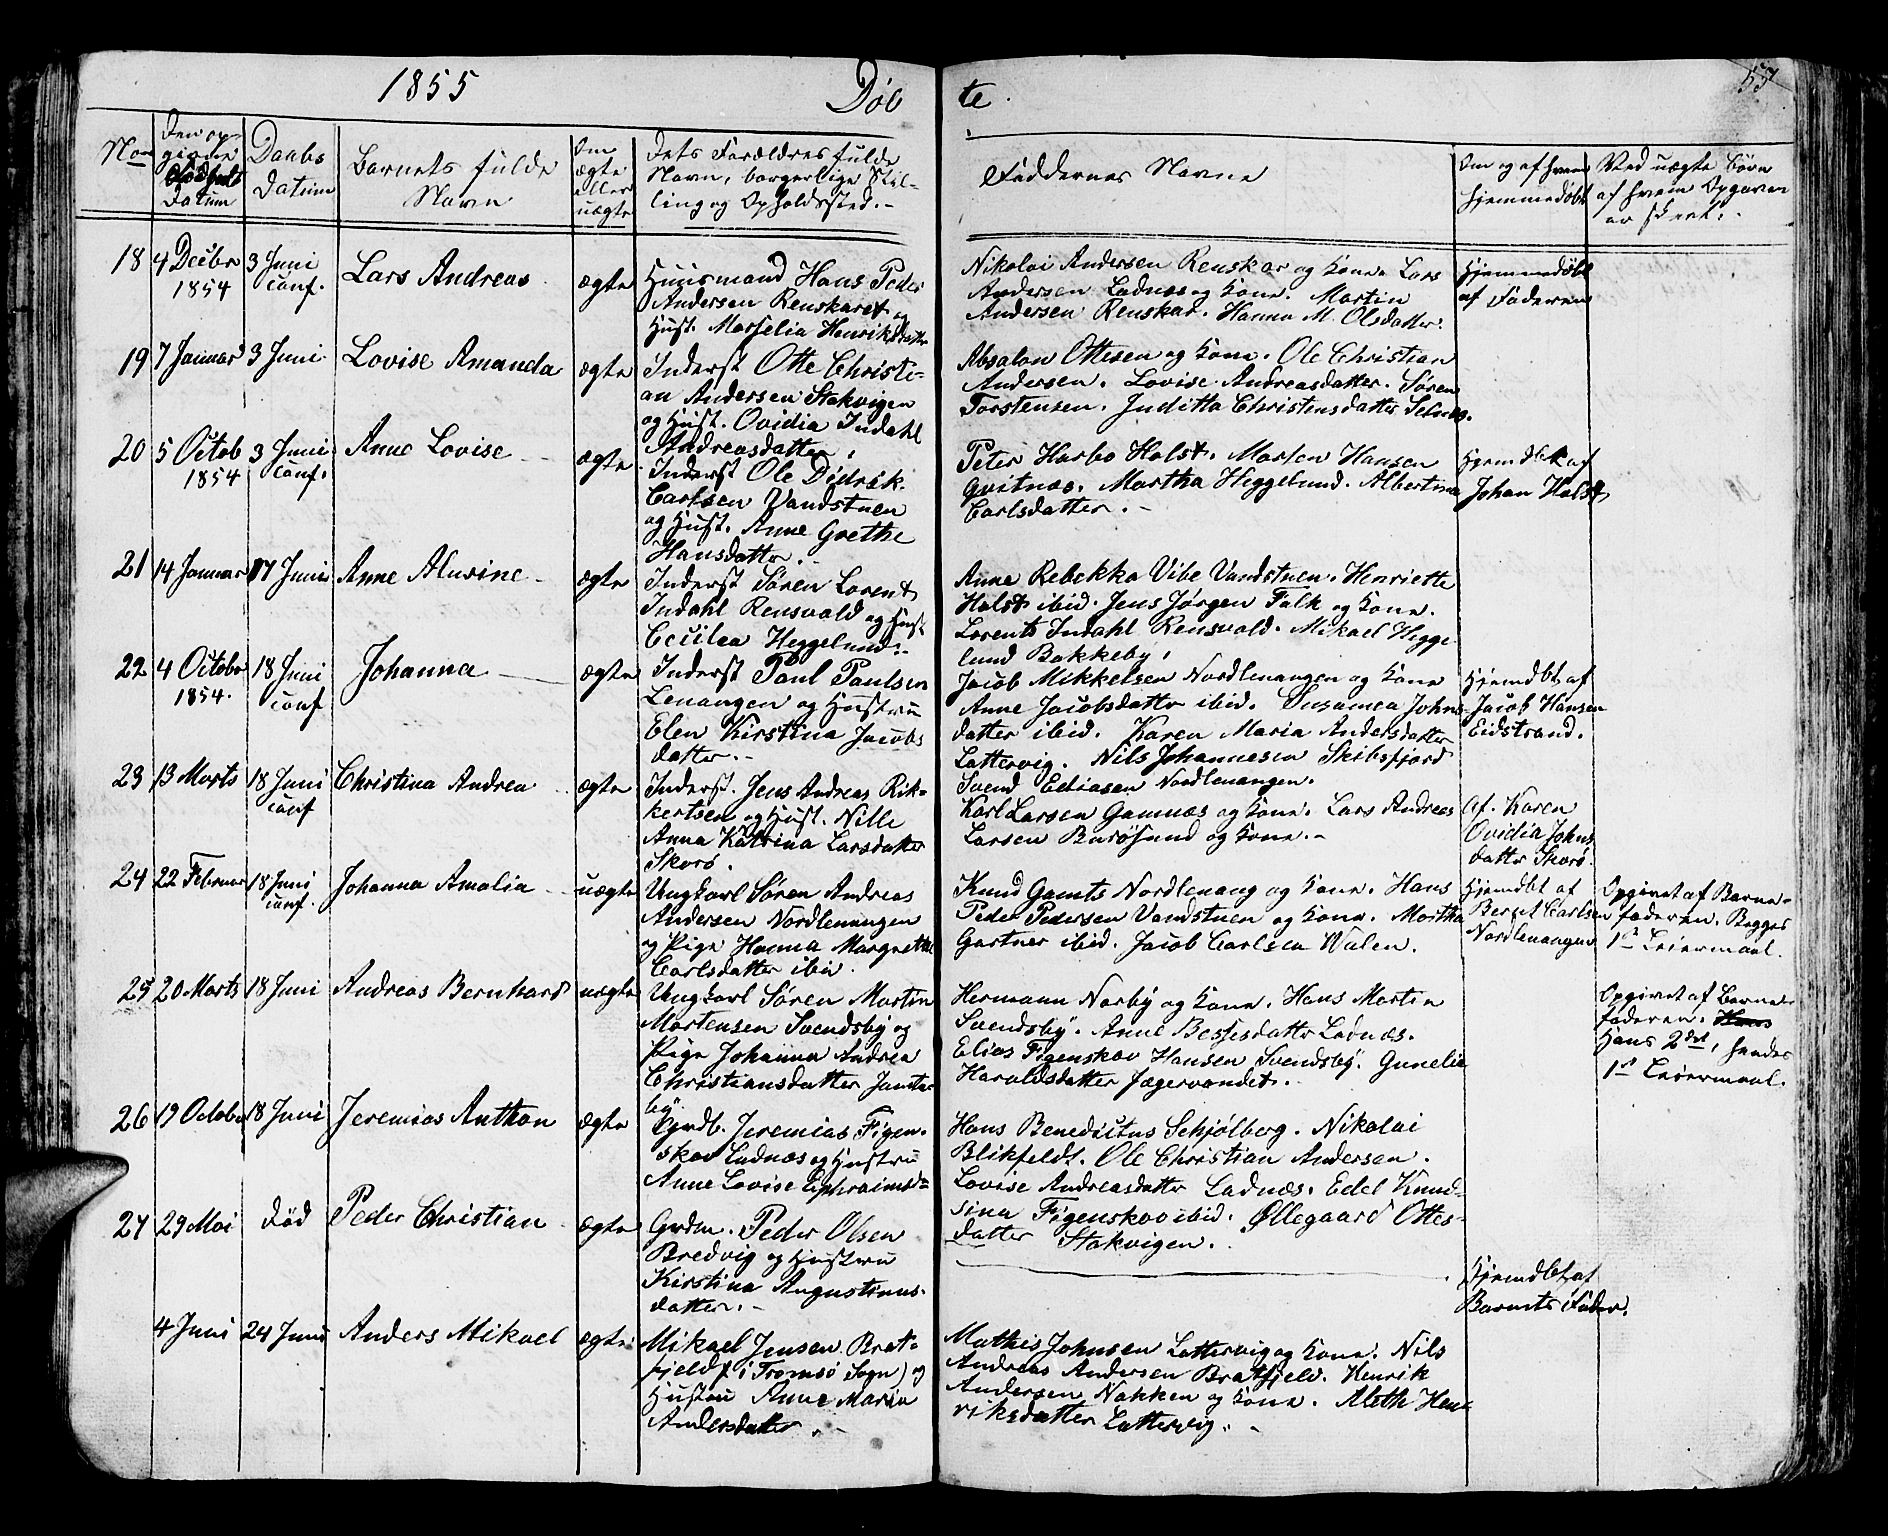 1855 Døb te. 55
Non
Den op-
givne
Datum
Daabs
Datum
Barnets fulde
Navn
Om
ægte
eller
uægte
Dets Forældres fulde
Navn, borgerlige Stil-
ling og Opholdssted.-
Faddernes Navne
Om og af hvem
hjemmedøbt
Ved uægte Børn
af hvem Opgaven
er skeet.-
18 4 Decbr
1854
3 Juni
conf.
Lars Andreas
ægte
Huusmand Hans Peder
Andersen Renskaret og
Hust. Marselia Henriksdatter
Nikolai Andersen Renskar og Kone. Lars
Andersen Ladnæs og Kone. Martin
Andersen Renskar. Hanna M. Olsdatter.
Hjemmedøbt
af Faderen
19 7 Januar 3 Juni.
Lovise Amanda
ægte
Inderst Otte Christi-
an Andersen Stakvigen
og Hust. Ovidia Indahl
Andreasdatter.
Absalon Ottesen og Kone. Ole Christian
Andersen. Lovise Andreasdatter. Søren
Torstensen. Juditta Christensdatter Selnæs.
20 5 Octob
1854
3 Juni
Conf.
Anne Lovise
ægte
Inderst Ole Didrik
Carlsen Vandstuen
og Hust. Anne Grethe
Hansdatter.
Peter Harbo Holst. Morten Hansen
Gvitnæs. Martha Heggelund. Albertina
Carlsdatter.-
Hjemdbt af
Johan Holst
21 14 Januar 17 Juni
Anne Alusine
ægte
Inderst Søren Lorent
Indahl Rensvold og Hust
Cecilea Heggelund.-
Anne Rebekka Vibe Vandstuen. Henriette
Holst ibid. Jens Jørgen Falk og Kone.
Lorents Indahl Rensvold. Mikael Hegge-
lund Bakkeby.
22 4 Octobr
1854.
18 Juni
conf
Johanna
ægte
Inderst Paul Paulsen
Lenangen og Hustru
Elen Kirstina Jacobs
datter.-
Jacob Mikkelsen Nordlenangen og Kone
Anne Jacobsdattr ibid. Susanna Johns-
datter ibid. Karen Maria Andersdatter
Lattervig. Nils Johannesen Skibsfjord
Svend Ediasen Nordlenangen.
Hjemdbt af
Jacob Hansen
Eidstrand.
23 13 Marts 18 Juni
conf
Christina Andrea
ægte
Inderst. Jens Andreas Rik-
kertsen og Hust. Nille
Anna Katrina Larsdatter
Skorø.
Karl Larsen Gamnæs og Kone. Lars Andreas
Larsen Barøsund og Kone.-
af Karen
Ovidia Johns
datter Skorø.
24 22 Februar 18 Juni
conf.
Johanna Amalia
uægte
Ungkarl Søren Andreas
Andersen Nordlenangen
og Pige Hanna Margretha
Carlsdatter ibid.
Knud Gamts Nordlenang og Kone. Hans
Peder Pedersen Vandstuen og Kone. Martha
Gartner ibid. Jacob Carlsen Walen.
Hjemdbt af
Bernt Carlsen
Nordlenangen
Opgivet af Barne-
faderen. Begges
1st Leiermaal.
25 20 Marts 18 Juni
Andreas Bernhard
uægte
Ungkarl Søren Martin
Mortensen Svendsby og
Pige Johanna Andrea
Christiansdatter Jansta-
by.
Hermann Norby og Kone. Hans Martin
Svendsby. Anne Besjesdatter Ladnæs.
Elias Figenskov Hansen Svendsby. Gunelia
Haroldsdatter Jægervandet.-
Opgivet af Barne-
faderen. Hans
Hans 2det, hendes
1st Leiermaal.
26 19 Octobr 18 Juni
Jeremias Anthon
ægte
Grdb. Jeremias Figen-
skov Ladnæs og Hustru
Anne Lovise Ephraimsd-
Hans Benedictus Schjølberg. Nikolai
Blikfeldt. Ole Christian Andersen.
Lovise Andreasdatter Ladnæs. Edel Knud-
sina Figenskov ibid. Øllegaard Ottes-
datter Stakvigen.
27 29 Mai død
Peder Christian
ægte
Grdm. Peder Olsen
Bredvig og Hustru
Kirstina Augustinus-
datter.-
Hjemdbt af
Barnets Fader.
4 Juni 24 Juni
Anders Mikael
ægte
Mikael Jensen Brat-
fjeld (i Tromsø Sogn) og
Hustru Anne Maria
Andersdatter.-
Mathis Johnsen Lattervig og Kone. Nils
Andreas Andersen Bratfjeld. Henrik
Andersen Nakken og Kone. Aleth Hen-
riksdatter Lattervig.-